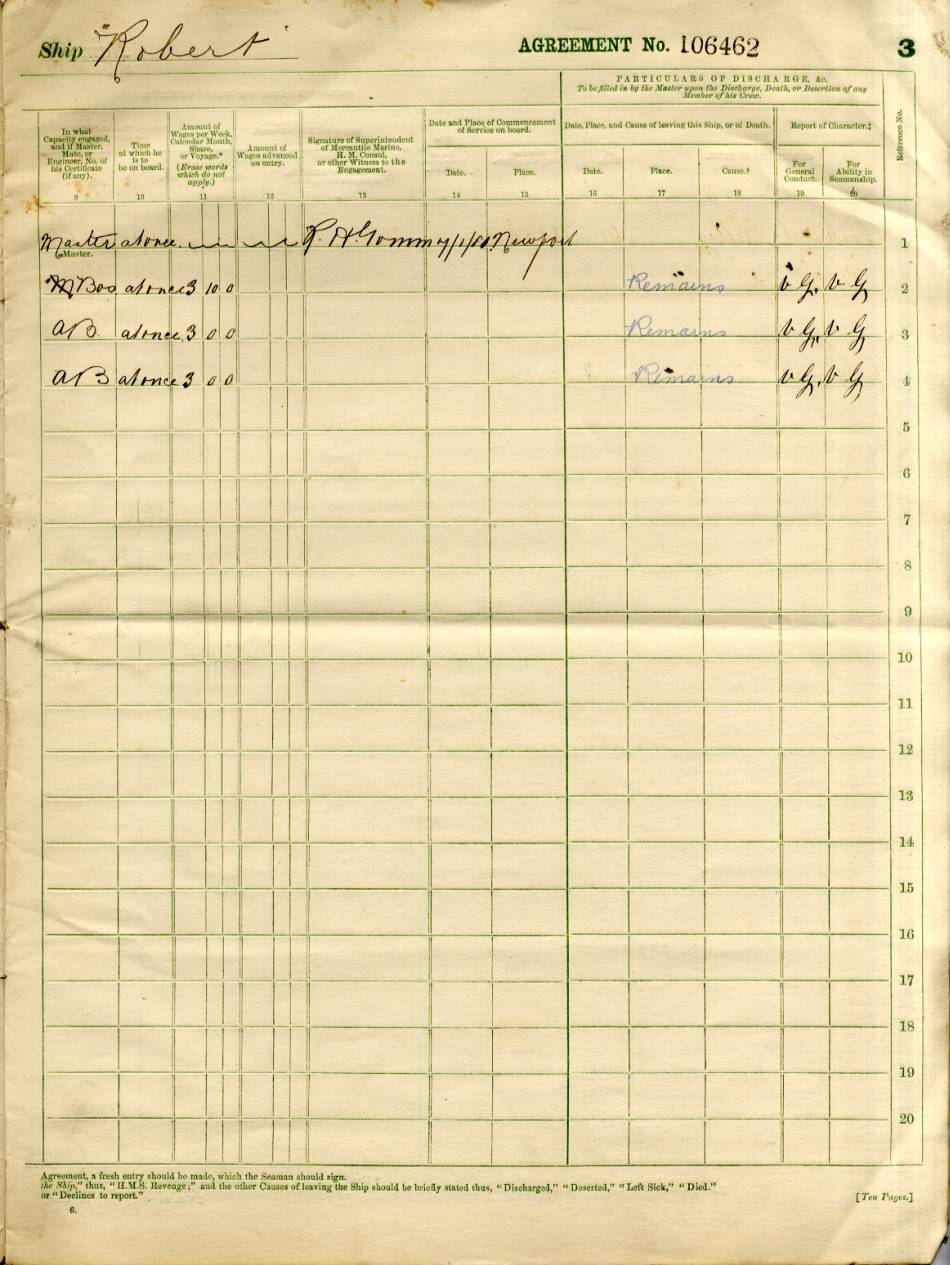 Ship Robert AGREEMENT No. 106462 3
PARTICULARS OF DISCHARGE, &c.
To be filled in by the Master upon the Discharge, Death, or Desertion of any
Member of his Crew.
In what
Capacity engaged,
and if Master,
Mate, or
Engineer, No. of
his Certificate
(if any).
Time
at which he
is to
be on board.
Amount of
Wages per Week,
Calendar Month,
Share,
or Voyage.*
(Erase words
which do not
apply.)
Amount of
Wages advanced
on entry.
Signature of Superintendent
of Mercantile Marine,
H. M. Consul,
or other Witness to the
Engagement.
Date and Place of Commencement
of Service on board.
Date. Place.
Date, Place, and Cause of leaving this Ship, or of Death.
Date. Place. Cause.†
Report of Character.‡
For
General
Conduct.
For
Ability in
Seamanship.
Reference No.
9 10 11 12 13 14 15 16 17 18 19 20
Master at once Newport 1
Master.
at once 3 10 0 Remains V G. V G 2
AB. at once 3 0 0 Remains V G. V G 3
AB at once 3 0 0 Remains V G. V G 4
5
6
7
8
9
10
11
12
13
14
15
16
17
18
19
20
Agreement, a fresh entry should be made, which the Seaman should sign.
the Ship," thus, "H.M.S. Revenge;" and the other Causes of leaving the Ship should be briefly stated thus, "Discharged," "Deserted," "Left Sick," "Died."
or "Declines to report." [Ten Pages.]
6.